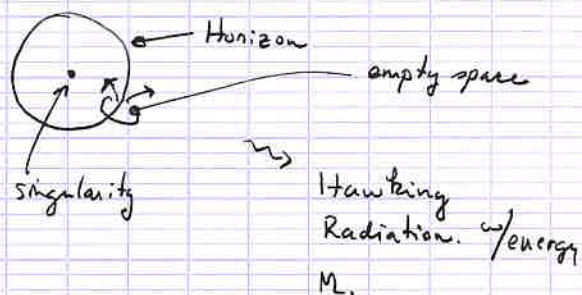 Horizon
empty space
singularity
Hawking
Radiation. w/energy
M.